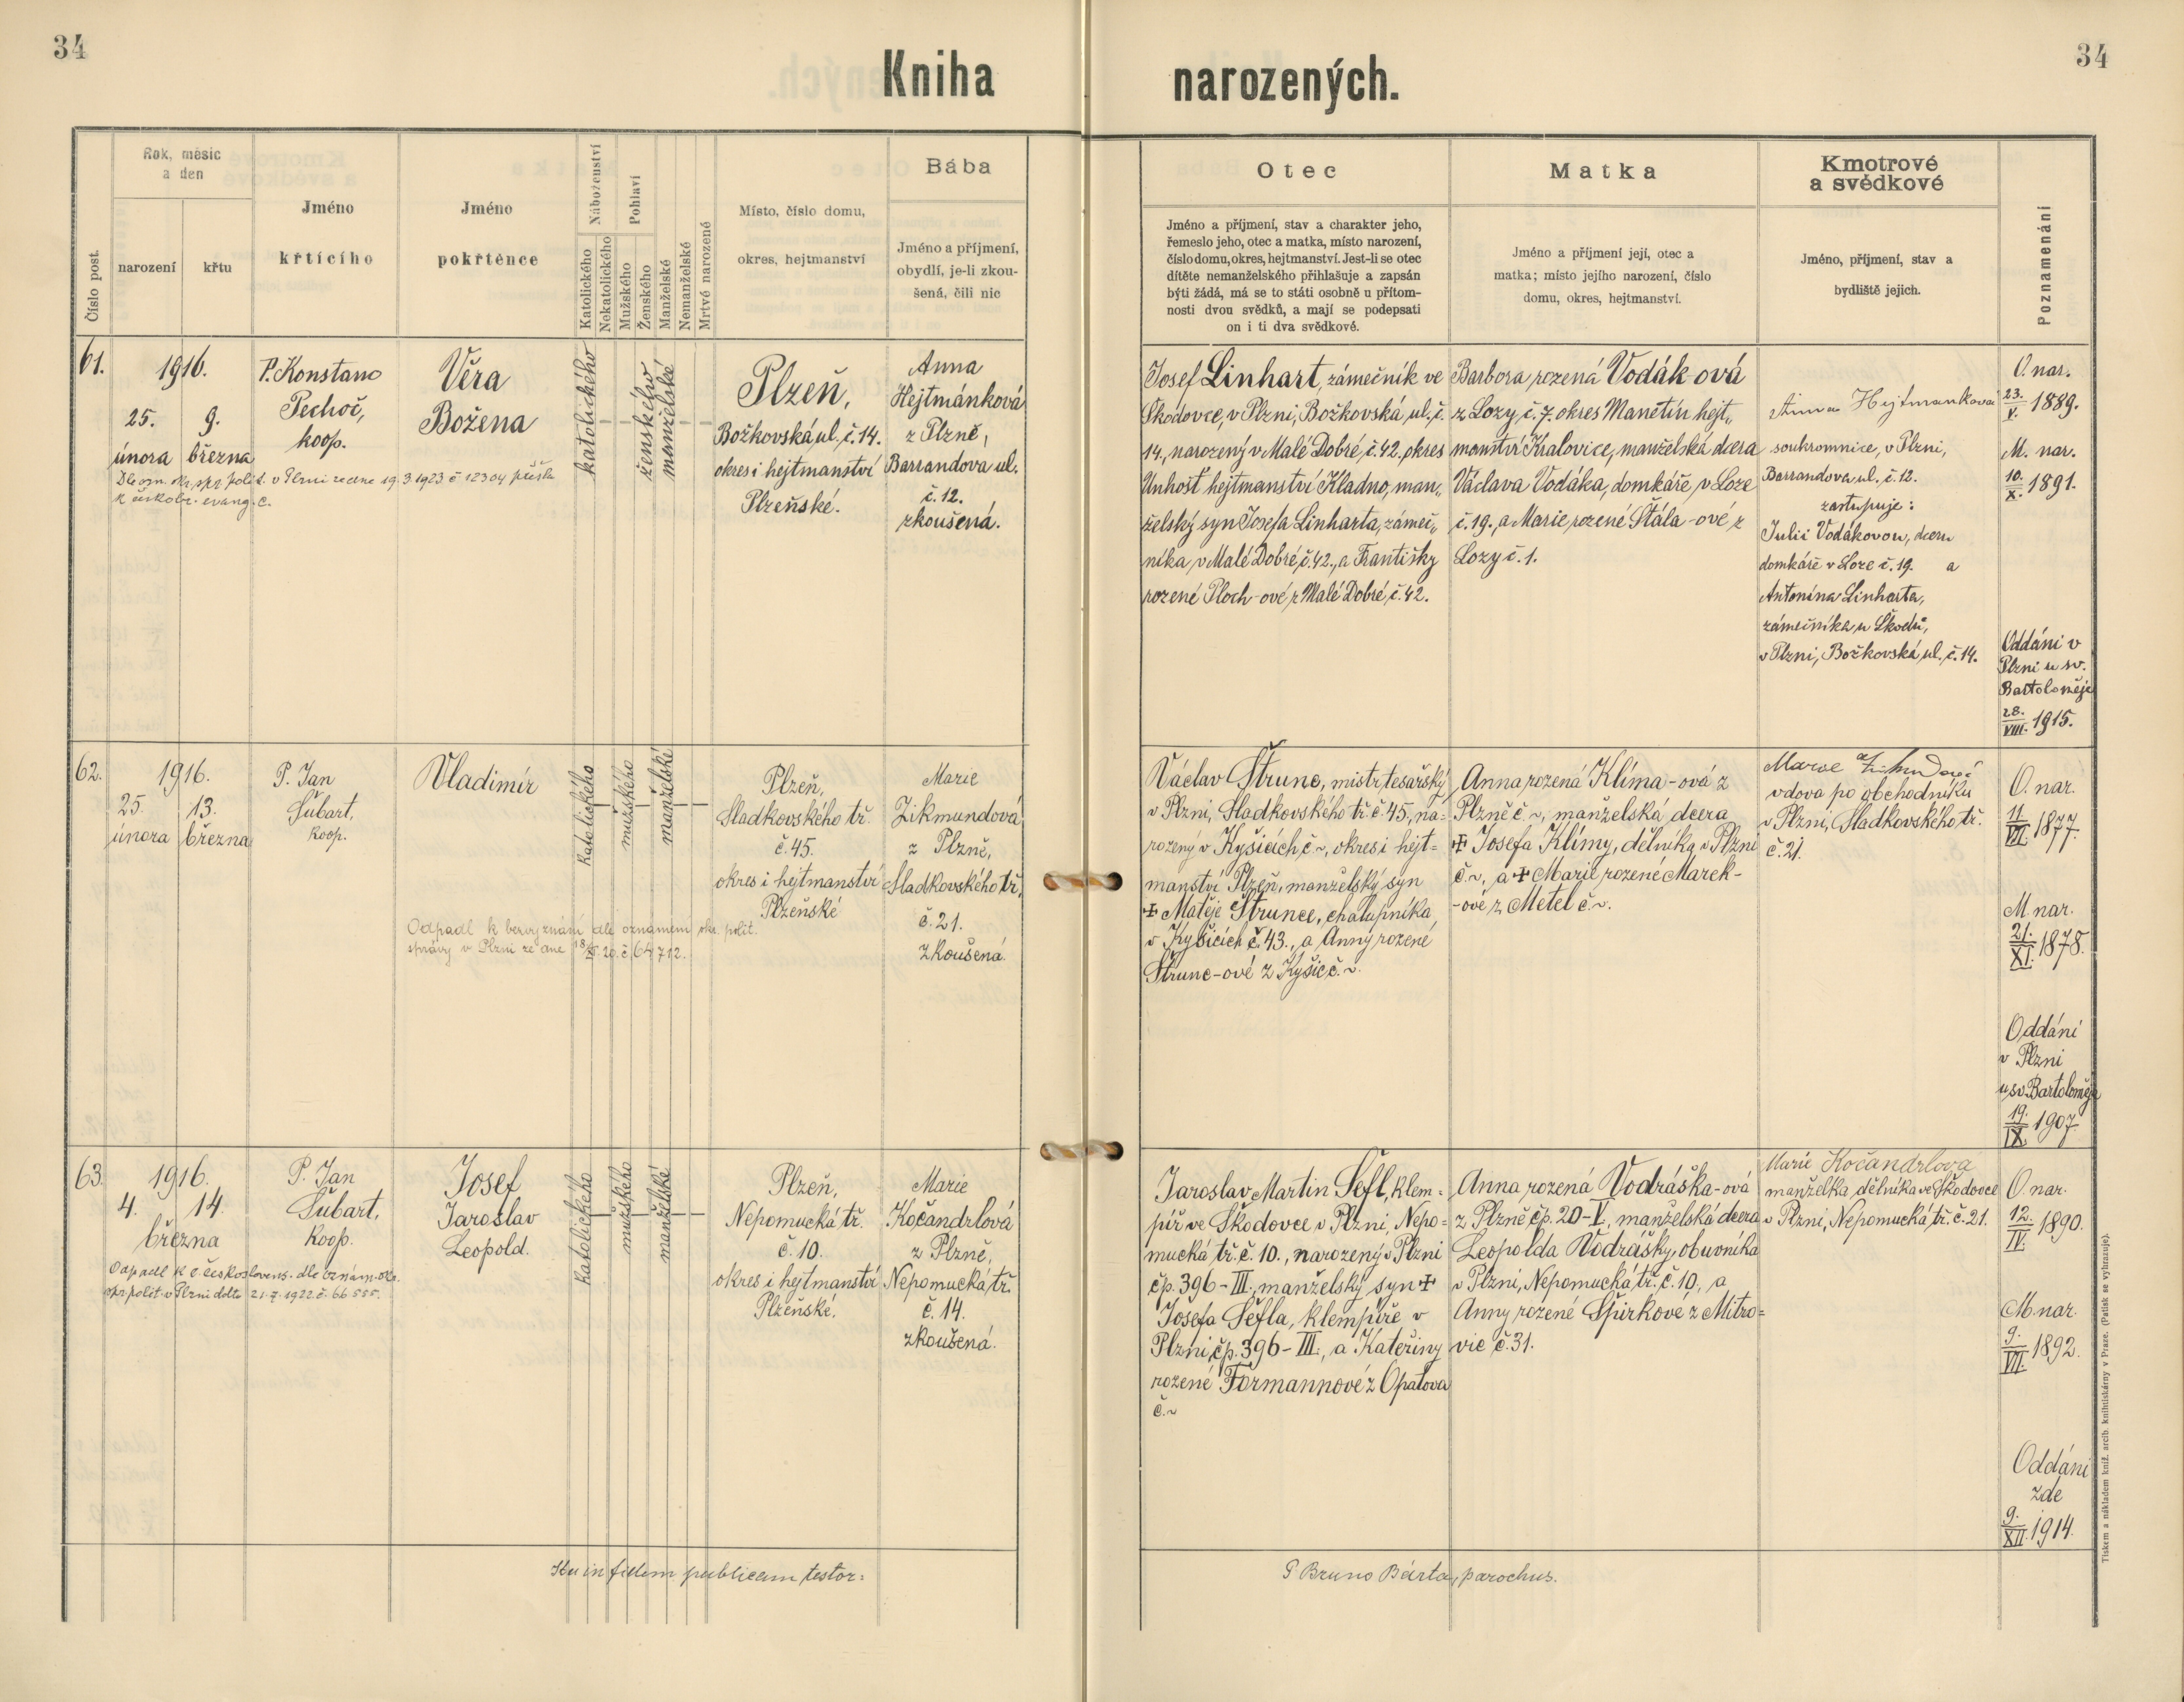 34
34
Kniha narozených.
Číslo post.
Rok, měsíc
a den
narození
křtu
Jméno
křtícího
Jméno
pokřtěnce
Náboženství
Katolického
Nekatolického
Pohlaví
Mužského
Ženského
Manželské
Nemanželské
Mrtvě narozené
Místo, číslo domu,
okres, hejtmanství
Bába
Jméno a příjmení,
obydlí, je-li zkou-
šená, čili nic
Otec
Jméno a příjmení, stav a charakter jeho,
řemeslo jeho, otec a matka, místo narození,
číslo domu, okres, hejtmanství. Jest-li se otec
dítěte nemanželského přihlašuje a zapsán
býti žádá, má se to státi osobně u přítom-
nosti dvou svědků, a mají se podepsati
on i ti dva svědkové.
Matka
Jméno a příjmení její, otec a
matka; místo jejího narození, číslo
domu, okres, hejtmanství.
Kmotrové
a svědkové
Jméno, příjmení, stav a
bydliště jejich.
Poznamenání
61.
1916.
25. 9.
února března
P. Konstanc
Pechoč,
koop.
Věra
Božena
Dle ozn. okr. spr. polit. v Plzni ze dne 19.3 1923 č 12304 přešla
k českobr. evang. c.
katolického
ženského
manželské
Plzeň,
Božkovská ul. č. 14.
okres i hejtmanství
Plzeňské.
Anna
Hejtmánková
z Plzně,
Barrandova ul.
č. 12.
zkoušená.
Josef Linhart, zámečník ve
Škodovce, v Plzni, Božkovská ul. č.
14, narozený v Malé Dobré č. 42, okres
Unhošť hejtmanství Kladno, man„
želský syn Josefa Linharta, zámeč„
níka, v Malé Dobré, č. 42., a Františky
rozené Ploch-ové z Malé Dobré, č. 42.
Barbora rozená Vodák-ová
z Lozy, č. 7. okres Manětín hejt„
manství Kralovice, manželská dcera
Václava Vodáka, domkáře v Loze
č. 19., a Marie rozené Štála-ové z
Lozy č. 1.
Anna Hejtmanková
soukromnice, v Plzni,
Barrandova ul. č. 12.
zastupuje:
Julii Vodákovou, dceru
domkáře v Loze č. 19. a
Antonína Linharta,
zámečníka u Škodů,
v Plzni, Božkovská ul. č. 14.
O. nar.
23./V. 1889.
M. nar.
10./X. 1891.
Oddáni v
Plzni u sv.
Bartoloměje
28./VIII. 1915.
62.
1916.
25. 13.
února března
P. Jan
Šubart,
koop.
Vladimír
Odpadl k bezvyznání dle oznámení okr. polit.
správy v Plzni ze dne 18/XI. 20. č. 64712.
katolického
mužského
manželské
Plzeň,
Sladkovského tř.
č. 45.
okres i hejtmanství
Plzeňské
Marie
Zikmundová
z Plzně,
Sladkovského tř.
č. 21.
zkoušená.
Václav Štrunc, mistr tesařský
v Plzni, Sladkovského tř. č. 45, na=
rozený v Kyšicích č. ~, okres i hejt=
manství Plzeň, manželský syn
✝ Matěje Štrunce, chalupníka
v Kyšicích č. 43., a Anny rozené
Štrunc-ové z Kyšic č. ~.
Anna rozená Klíma-ová z
Plzně č. ~, manželská dcera
✝ Josefa Klímy, dělníka v Plzni
č. ~, a ✝ Marie rozené Marek-
-ové z Metel č. ~.
Marie Zikmundová
vdova po obchodníku
v Plzni, Sladkovského tř.
č. 21.
O. nar.
11/VII. 1877.
M. nar.
21./XI. 1878.
Oddáni
v Plzni
u sv. Bartoloměje
19./IX. 1907.
63.
1916.
4. 14.
března
P. Jan
Šubart,
koop.
Josef
Jaroslav
Leopold.
Odpadl k c. českoslovens. dle oznám. okr.
spr. polit. v Plzni ddto 21.7.1922 č. 66 555.
katolického
mužského
manželské
Plzeň,
Nepomucká tř.
č. 10.
okres i hejtmanství
Plzeňské.
Marie
Kočandrlová
z Plzně,
Nepomucká tř.
č. 14.
zkoušená.
Jaroslav Martin Šefl, klem=
píř ve Škodovce v Plzni, Nepo=
mucká tř. č. 10., narozený v Plzni
čp. 396-III., manželský syn ✝
Josefa Šefla, klempíře v
Plzni, čp. 396-III., a Kateřiny
rozené Formannové z Opatova
č. ~
Anna rozená Vodráška-ová
z Plzně čp. 20-V., manželská dcera
Leopolda Vodrášky, obuvníka
v Plzni, Nepomucká tř. č. 10., a
Anny rozené Špirkové z Mitro=
vic č. 31.
Marie Kočandrlová
manželka dělníka ve Škodovce
v Plzni, Nepomucká tř. č. 21.
O. nar.
12./IV. 1890.
M. nar.
9./VII. 1892.
Oddáni
zde
9./XII. 1914.
Ita in fidem publicam testor:
P. Bruno Bárta, parochus.
Tiskem a nákladem kníž. arcib. knihtiskárny v Praze. (Patisk se vyhrazuje).